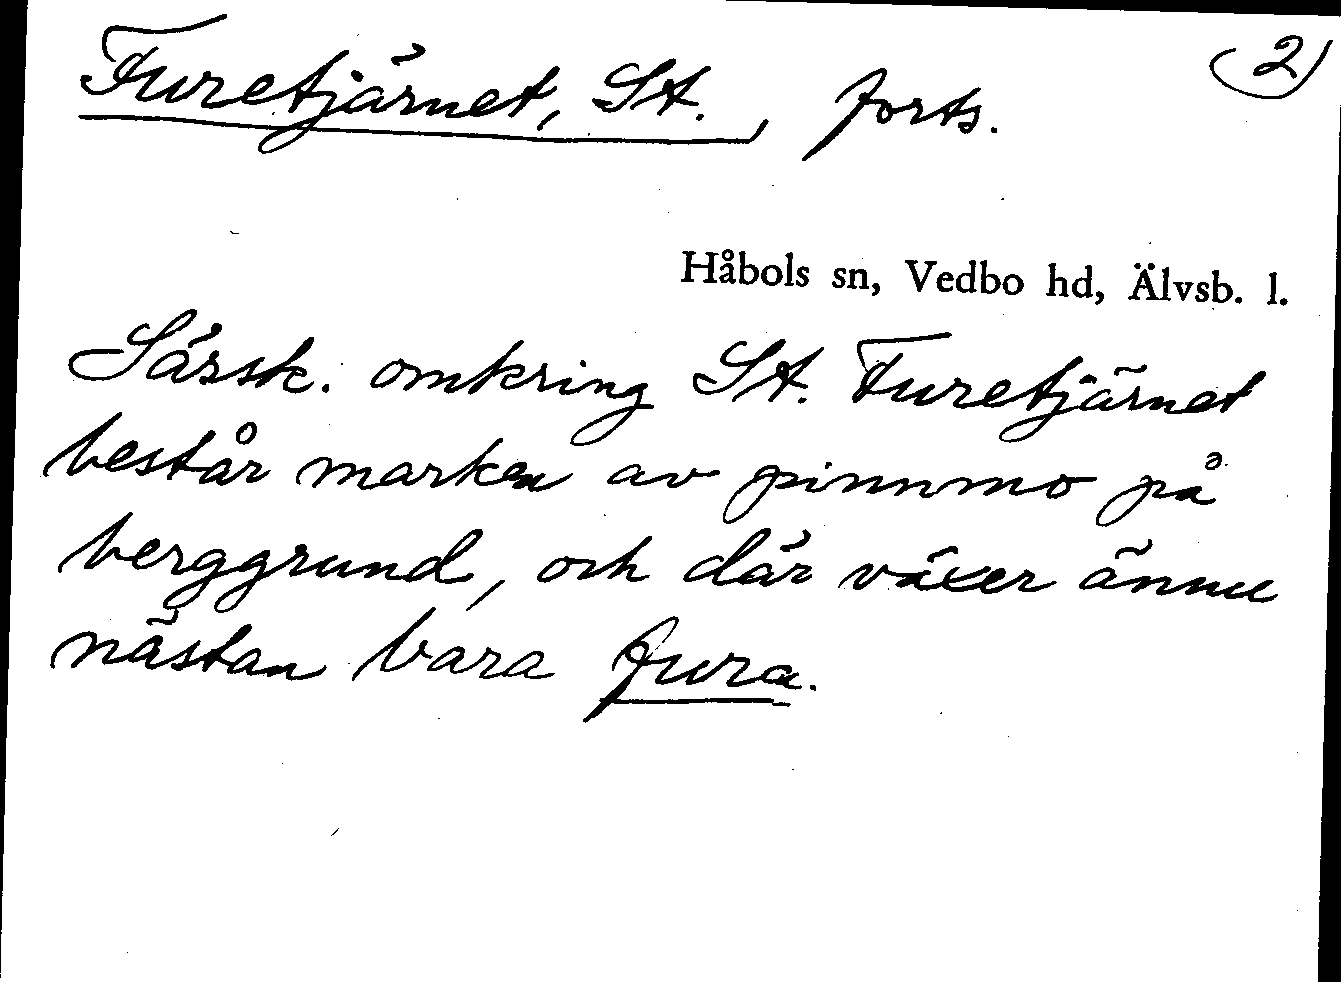 Furetjärnet, St., forts.
2
Håbols sn, Vedbo hd, Älvsb. l.
Särsk. omkring St. Furetjärnet
består marken av pinnmo på
berggrund, och där växer ännu
nästan bara fura.